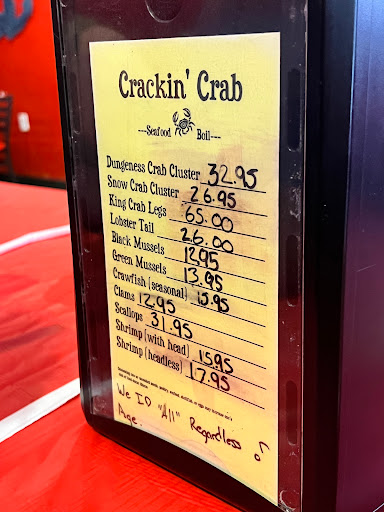 Crackin' Crab
---Seafood Boil---
Dungeness Crab Cluster 32.95
Snow Crab Cluster 26.95
King Crab Legs 65.00
Lobster Tail 26.00
Black Mussels 12.95
Green Mussels 13.95
Crawfish (seasonal) 15.95
Clams 12.95
Scallops 31.95
Shrimp (with head) 15.95
Shrimp (headless) 17.95
We ID "All" Regardless !
Age.